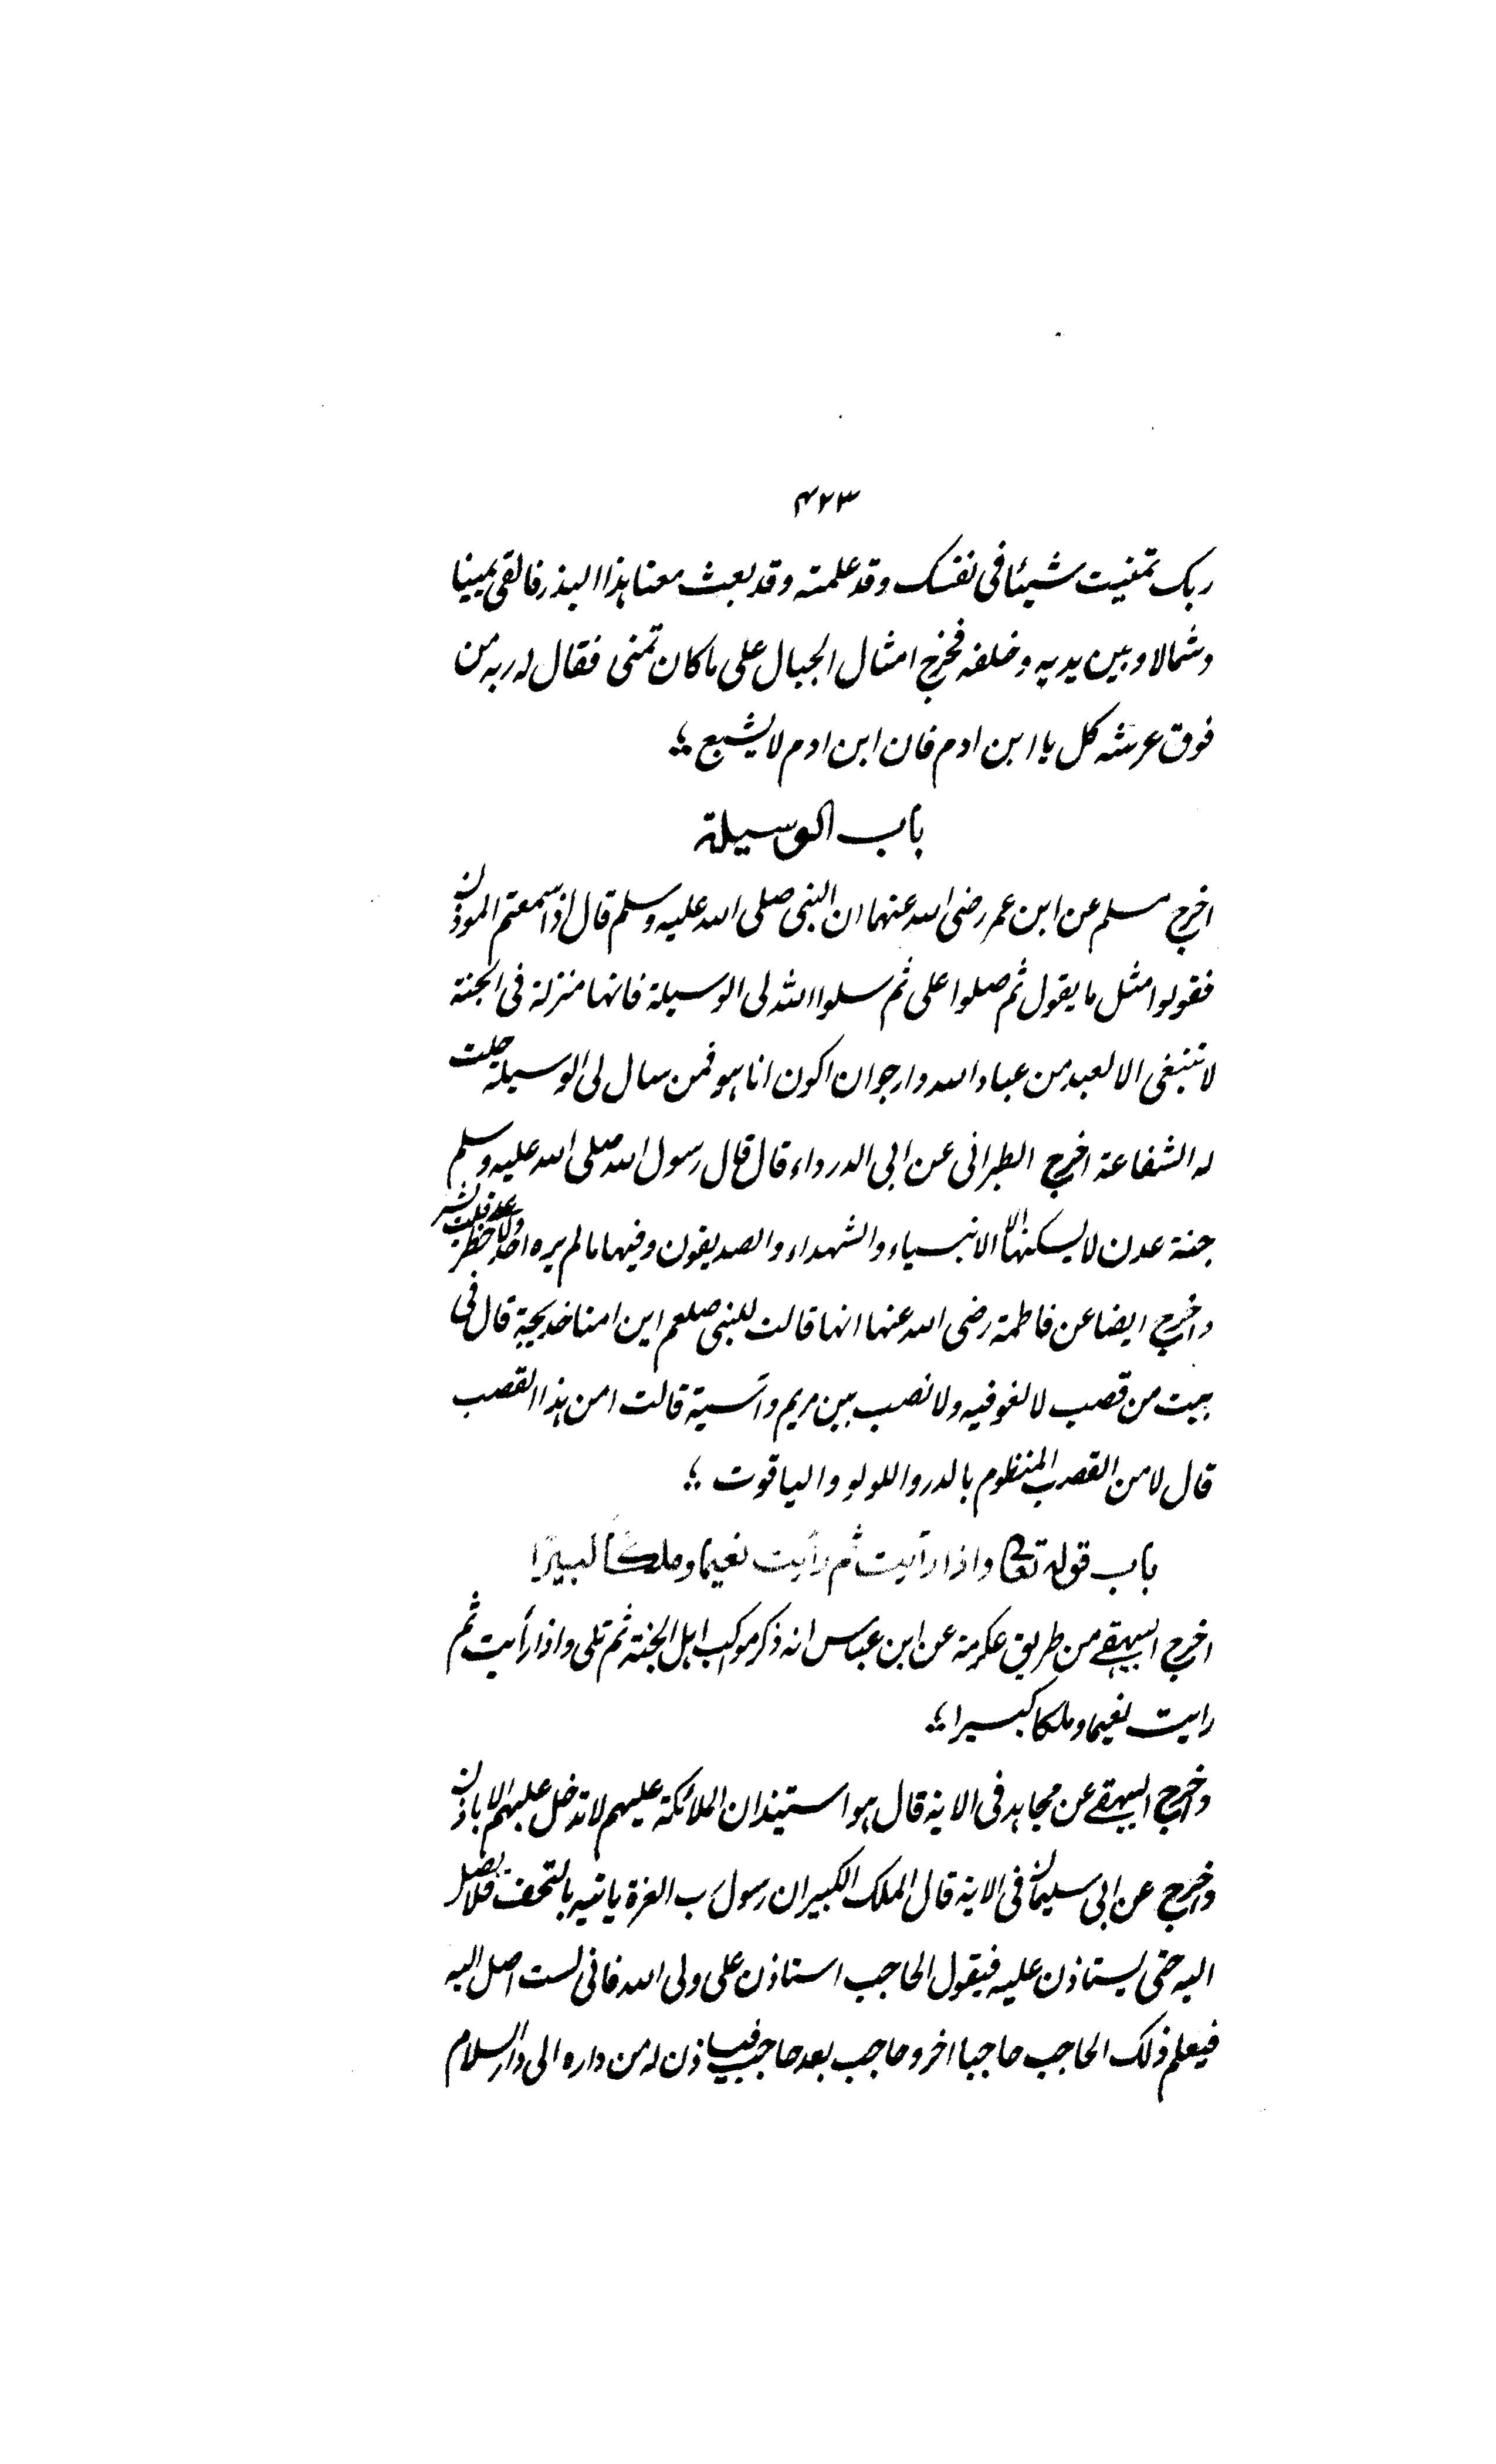 ۴۲۳
ربک تمنیت شیئا فی نفسک وقد علمته وقد بعث معنا ہذا البذر فالقی یمینا
وشمالا وبین یدیه وخلفه فخرج امثال الجبال علی ما کان تمنی فقال له ربه من
فوق عرشه کل یا ابن ادم فان ابن ادم لا یشبع ؛
باب الوسیلة
اخرج مسلم عن ابن عمر رضی الله عنهما ان النبی صلی الله علیه وسلم قال اذا سمعتم الموذن
فقولوا مثل ما یقول ثم صلوا علی ثم سلوا الله لی الوسیلة فانها منزلة فی الجنة
لا تنبغی الا لعبد من عباد الله وارجو ان اکون انا ہو فمن سال لی الوسیلة حلت
له الشفاعة اخرج الطبرانی عن ابی الدرداء قال قال رسول الله صلی الله علیه وسلم
جنة عدن لا یسکنها الا الانبیاء والشهداء والصدیقون وفیها ما لم یره احد ولا خطر علی قلب بشر
واخرج ایضا عن فاطمة رضی الله عنها انها قالت للنبی صلعم این امنا خدیجة قال فی
بیت من قصب لا لغو فیه ولا نصب بین مریم وآسیة قالت امن ہذا القصب
قال لا من القصب المنظوم بالدر واللولو والیاقوت ؛
باب قوله تعالی واذا رأیت ثم رأیت نعیما وملکا کبیرا
اخرج البیهقے من طریق عکرمة عن ابن عباس انه ذکر موکب اہل الجنة ثم تلی واذا رأیت ثم
رایت نعیما وملکا کبیرا ؛
واخرج البیهقے عن مجاہد فی الایة قال ہو استیذان الملائکة علیهم لا تدخل علیهم الا باذن
واخرج عن ابی سلیمان فی الایة قال الملک الکبیر ان رسول رب العزة یاتیه بالتحف فلا یصل
الیه حتی یستاذن علیه فیقول الحاجب استاذن علی ولی الله فانی لست اصل الیه
فیعلم ذلک الحاجب حاجبا اخر وحاجب بعد حاجب فیاذن له من داره الی دار السلام